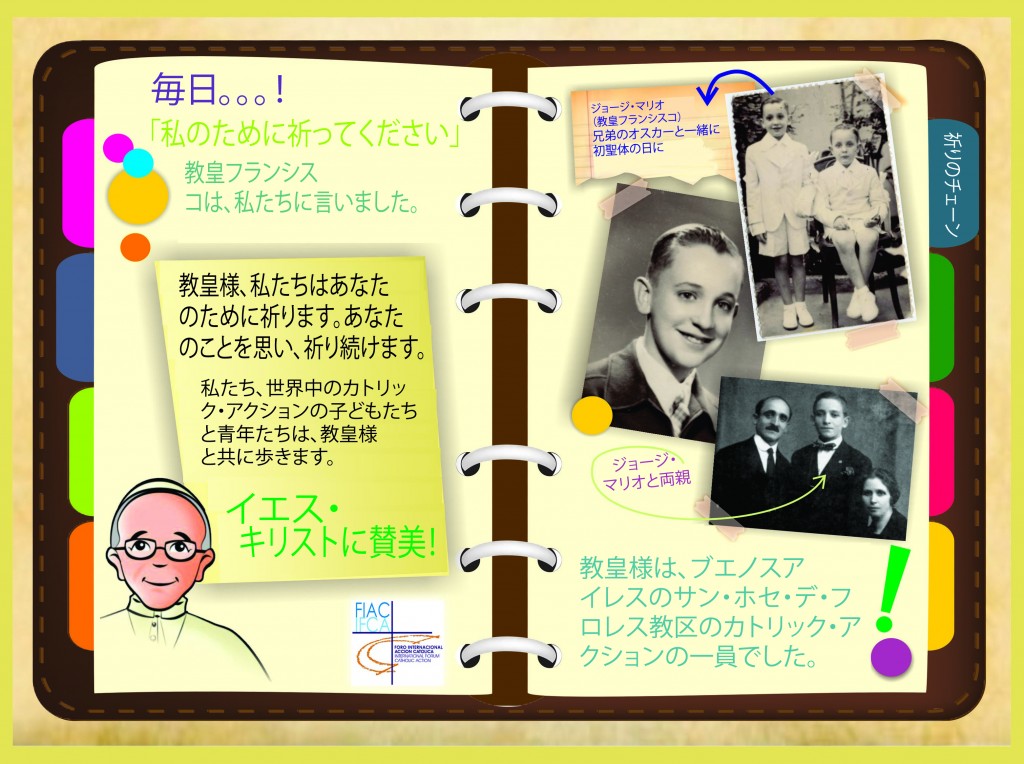 毎日。。。!
「私のために祈ってください」
教皇フランシス
コは、私たちに言いました。
教皇様、私たちはあなた
のために祈ります。あなた
のことを思い、祈り続けます。
私たち、世界中のカトリッ
ク・アクションの子どもたち
と青年たちは、教皇様
と共に歩きます。
イエス・
キリストに賛美!
FIAC
IFCA
FORO INTERNACIONAL
ACCION CATOLICA
INTERNATIONAL FORUM
CATHOLIC ACTION
ジョージ・マリオ
(教皇フランシスコ)
兄弟のオスカーと一緒に
初聖体の日に
祈りのチェーン
ジョージ・
マリオと両親
教皇様は、ブエノスア
イレスのサン・ホセ・デ・フ
ロレス教区のカトリック・ア
クションの一員でした。
!